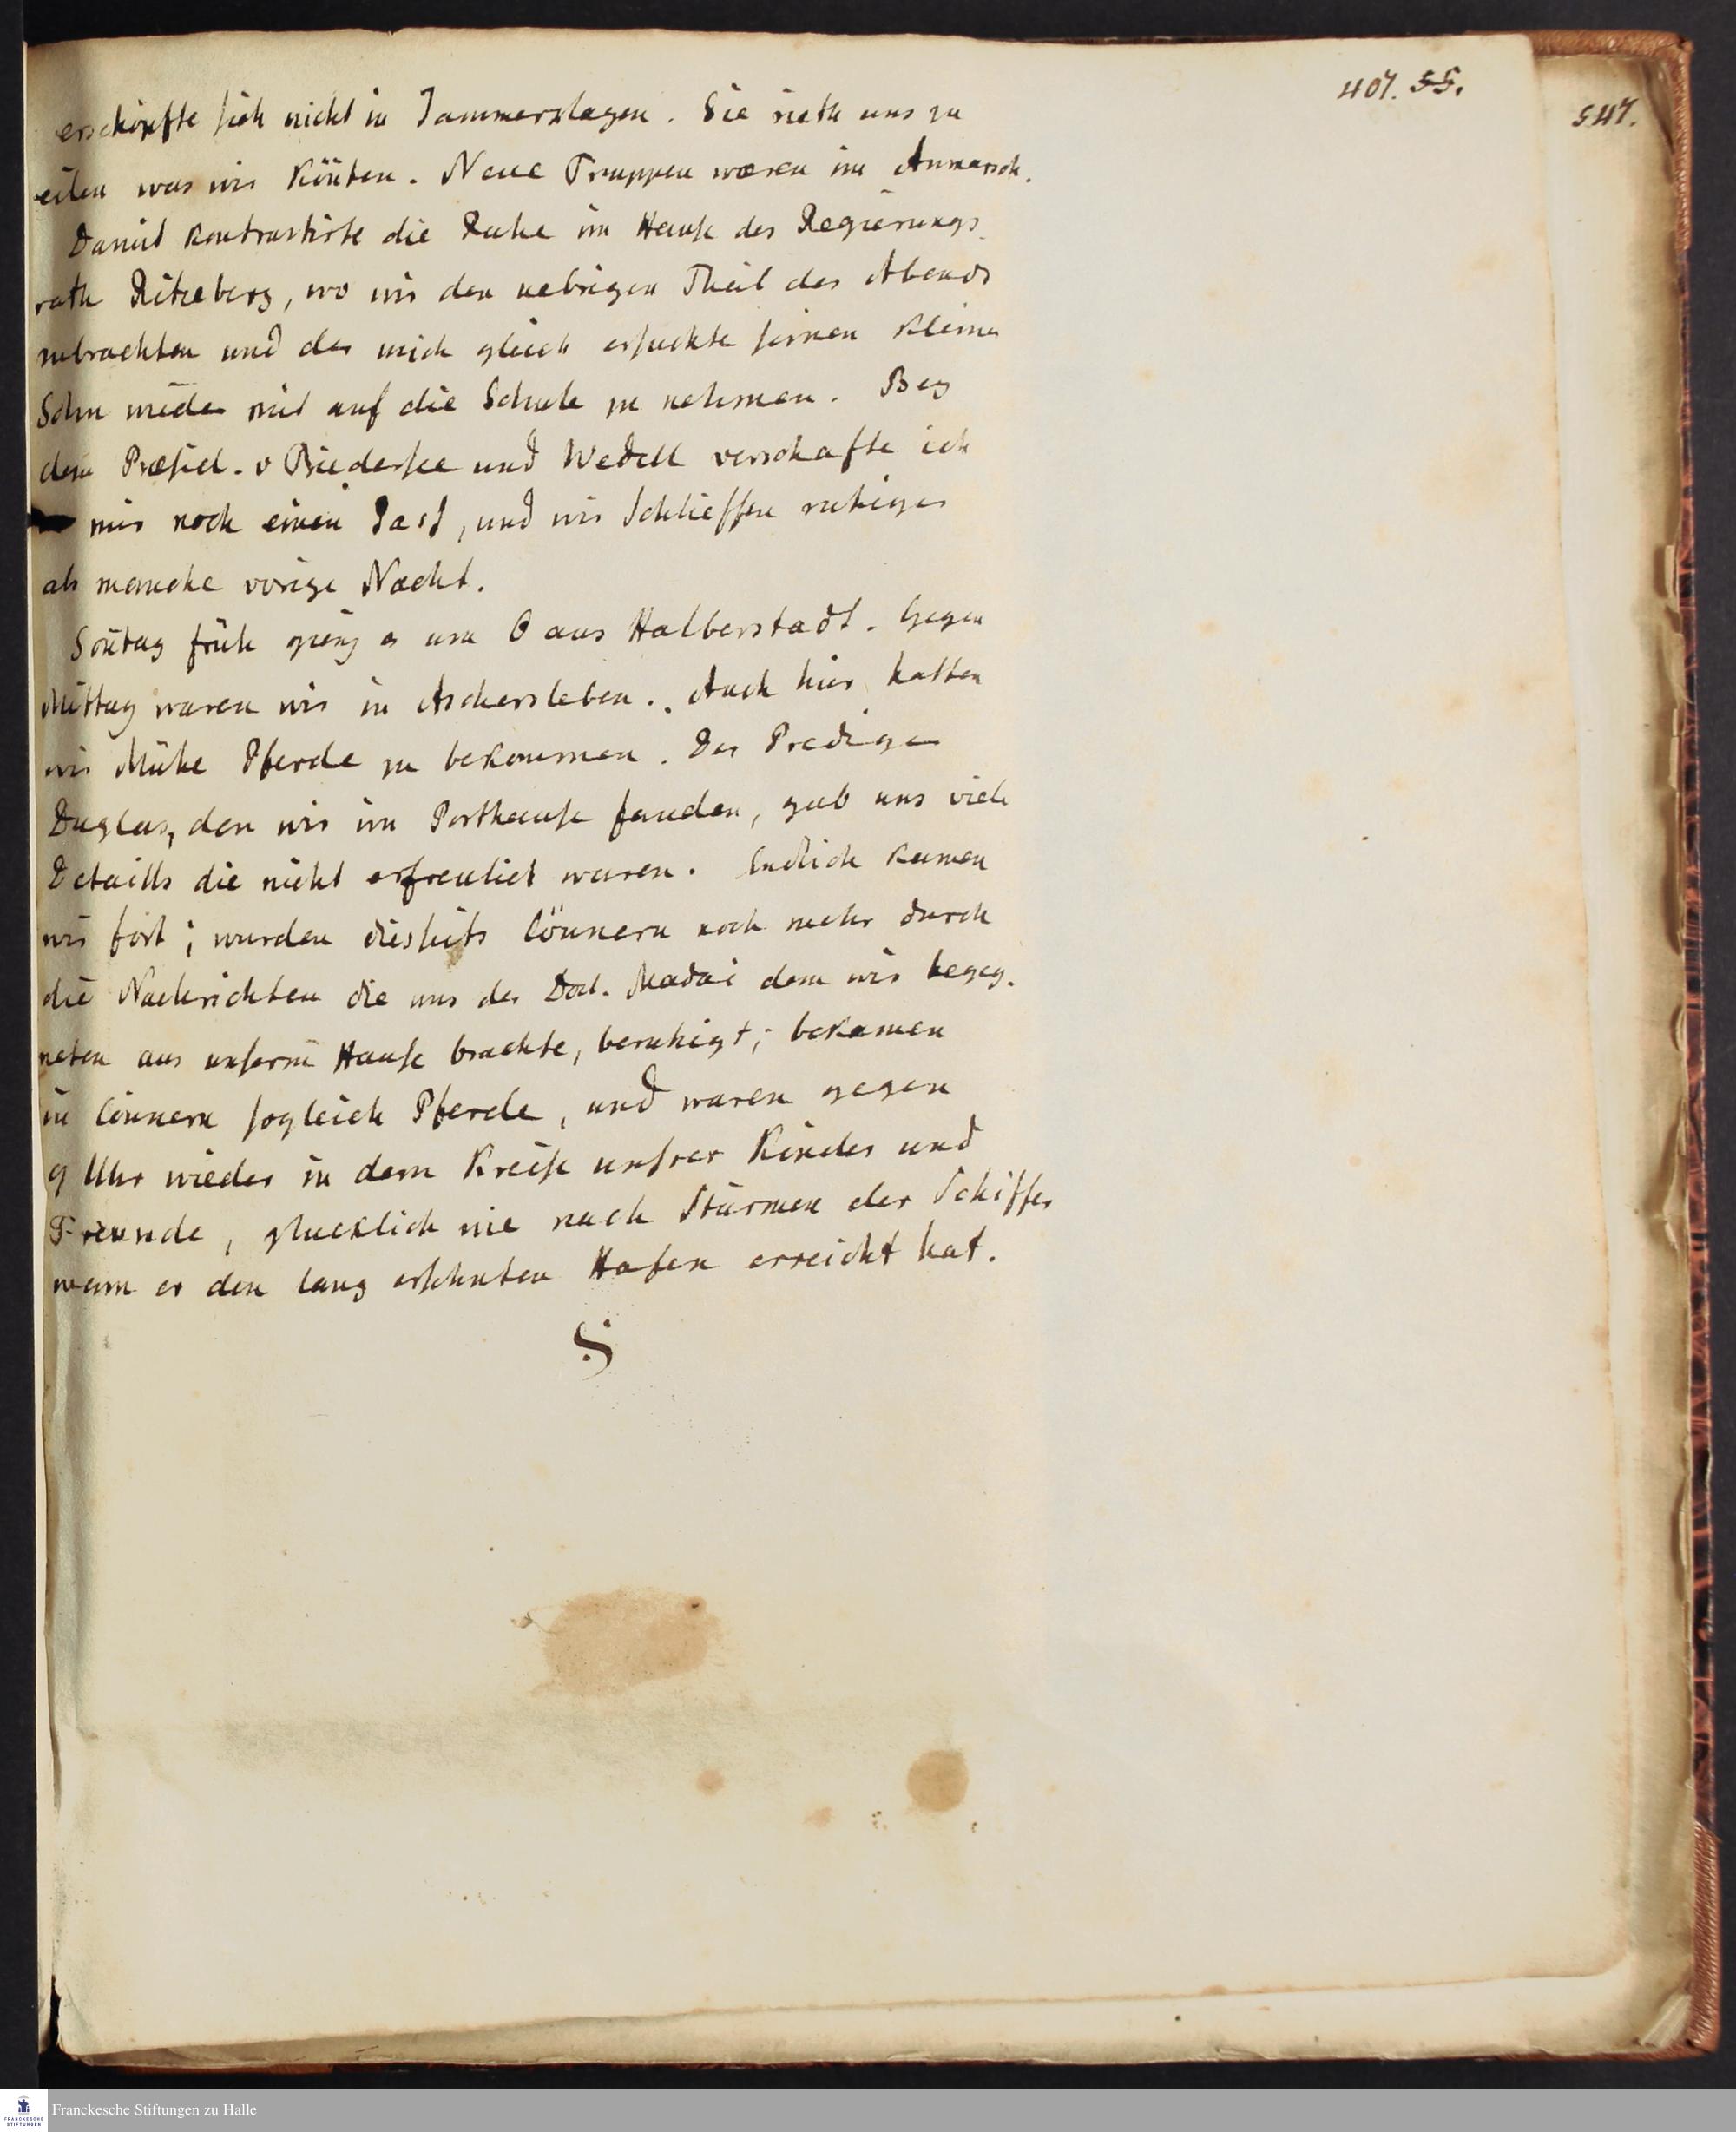 407. 55.
547.
erschöpfte sich nicht in Jammerklagen. Sie rieth uns zu
eilen was wir kön̄ten. Neue Truppen wären im Anmarsch.
Damit kontrastirte die Ruhe im Hause des Regierungs-
rath Ritzeberg, wo wir den uebrigen Theil des Abends
zubrachten und der mich gleich ersuchte seinen kleinen
Sohn wieder mit auf die Schule zu nehmen. Bey
dem Praesid. v Biedersee und Wedell verschafte ich
mir noch einen Pass, und wir schlieffen ruhiger
als manche vorige Nacht.
Son̄tag früh gieng es um 6 aus Halberstadt. Gegen
Mittag waren wir in Aschersleben. Auch hier hatten
wir Mühe Pferde zu bekommen. Der Prediger
Duglas, den wir im Posthause fanden, gab uns viele
Detaills die nicht erfreulich waren. Endlich kamen
wir fort; wurden diesseits Cönnern noch mehr durch
die Nachrichten die uns der Doct. Madai dem wir begeg-
neten aus unserm Hause brachte, beruhigt; bekamen
in Cönnern sogleich Pferde, und waren gegen
9 Uhr wieder in dem Kreise unsrer Kinder und
Freunde, glucklich wie nach Stürmen der Schiffer
wenn er den lang ersehnten Hafen erreicht hat.
Franckesche Stiftungen zu Halle
FRANCKESCHE
STIFTUNGEN